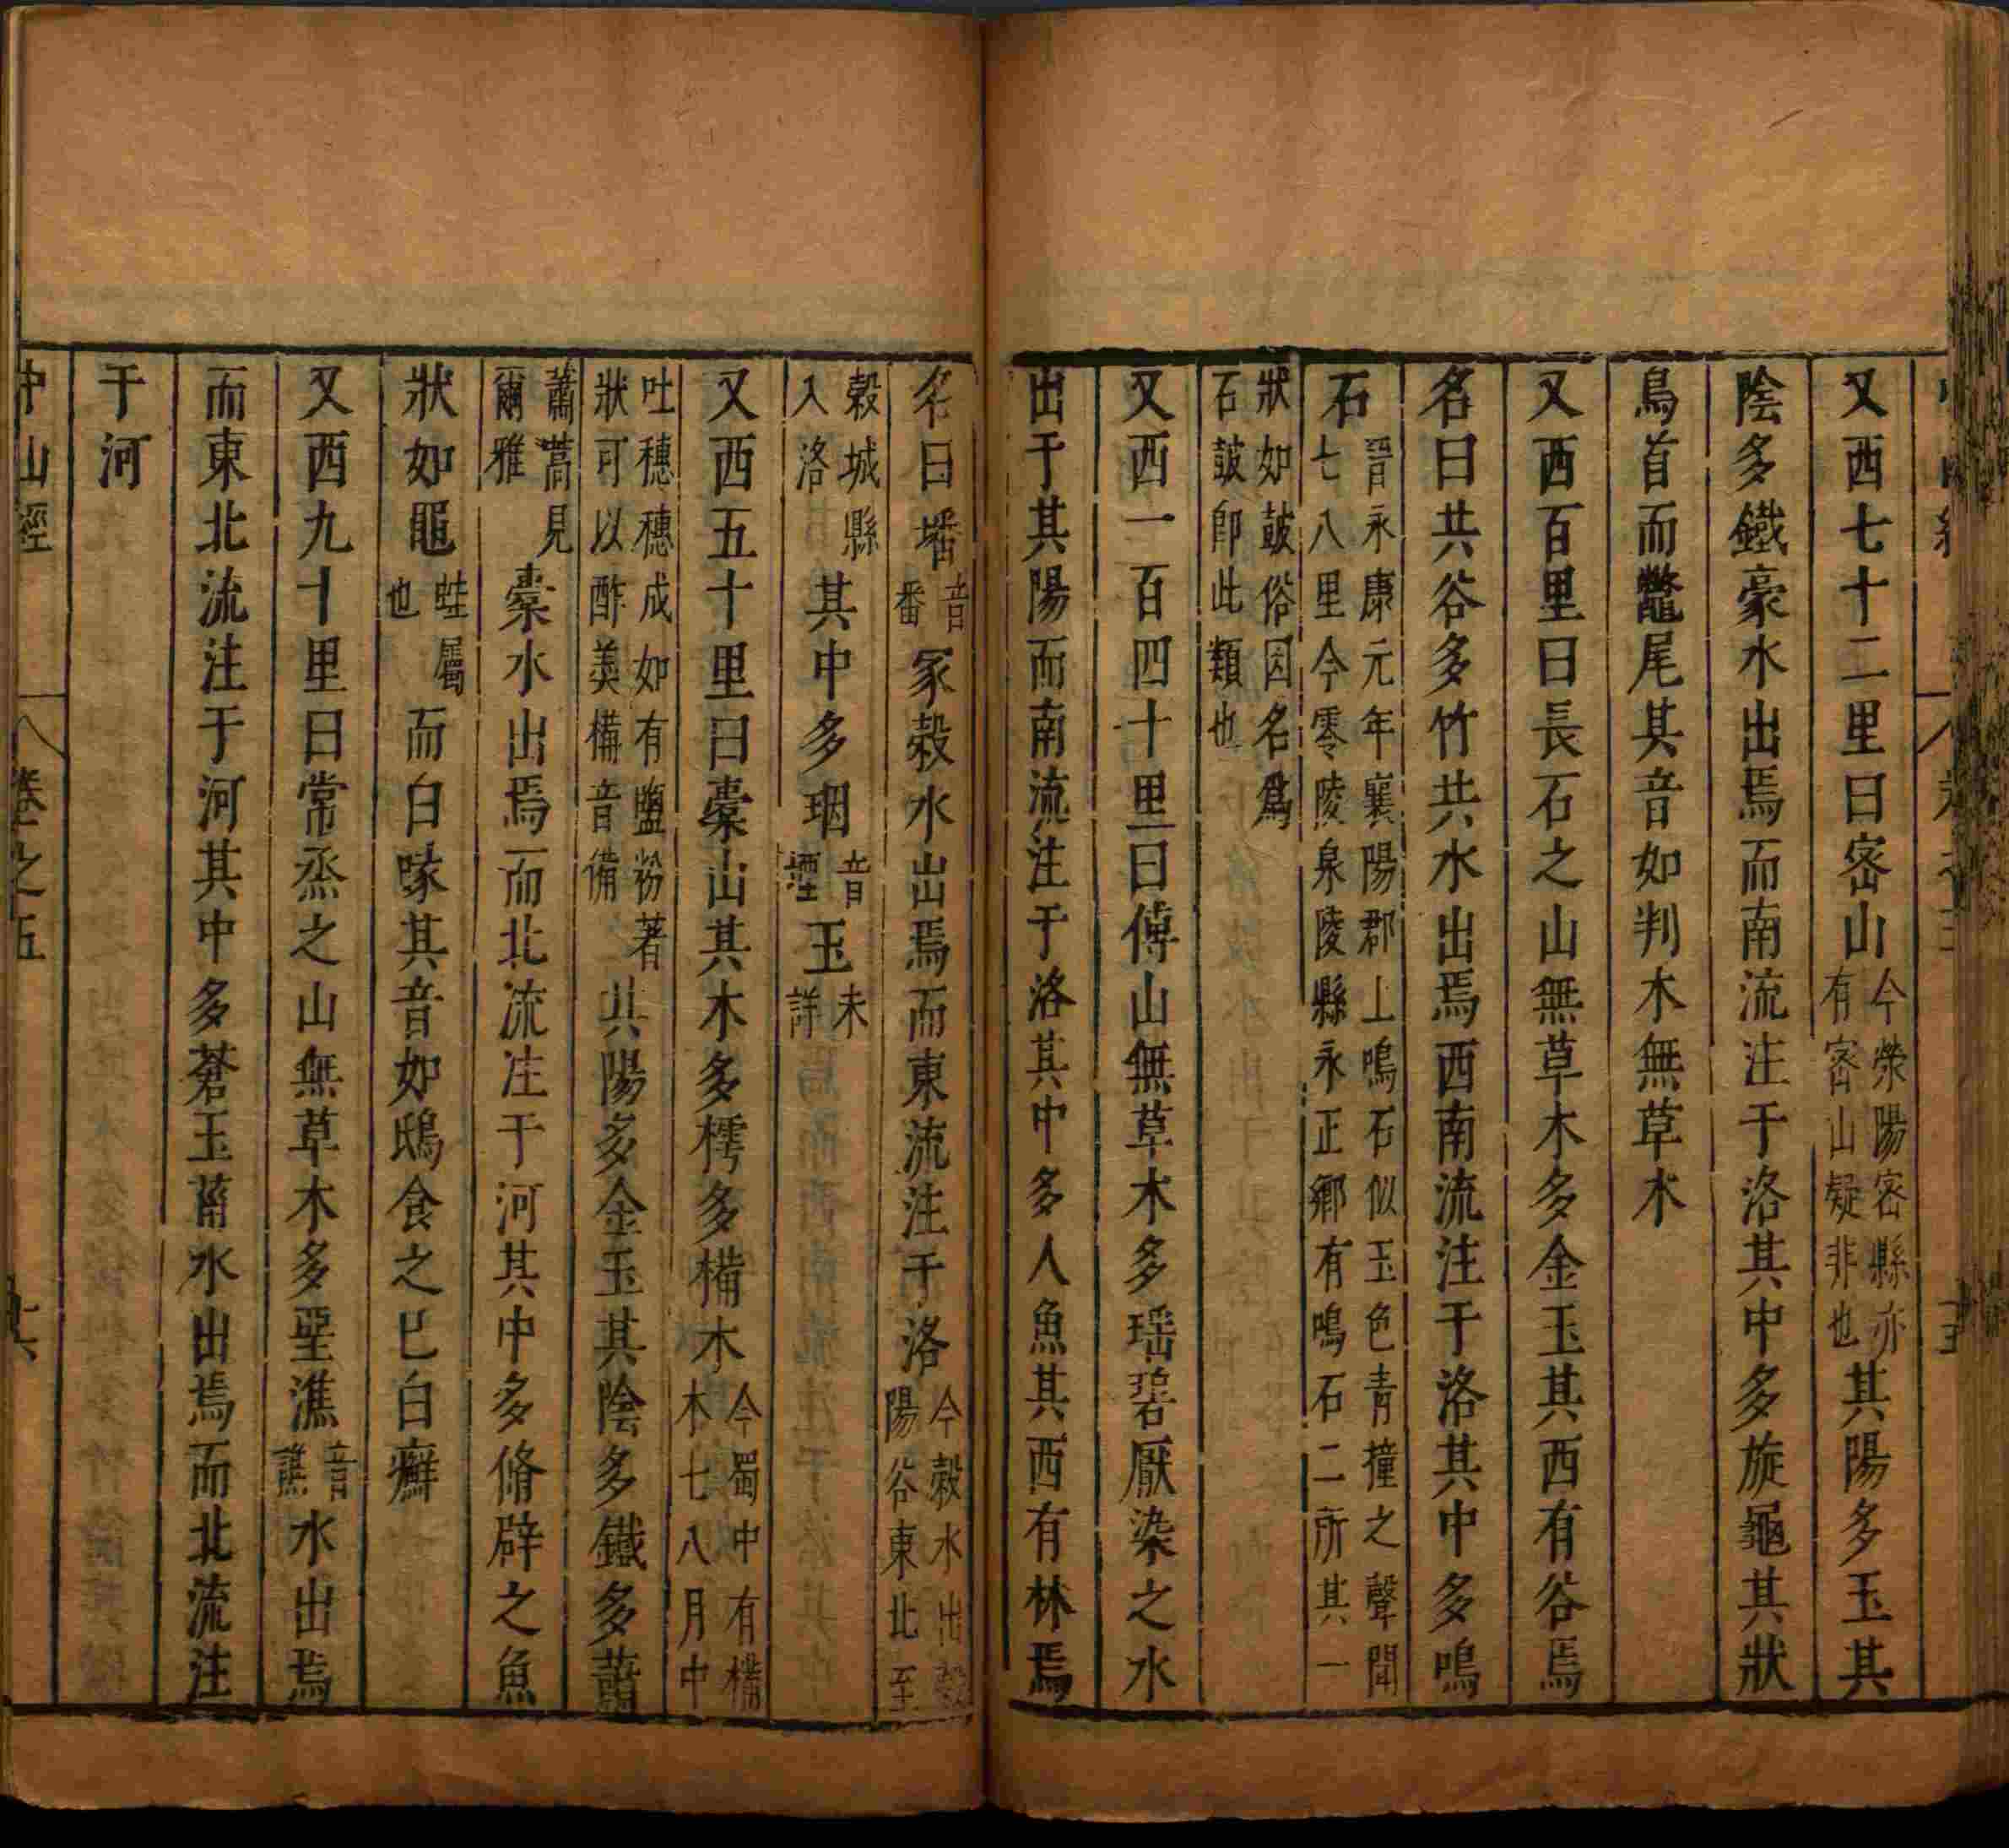 又西七十二里曰密山今滎陽密縣亦有密山疑非也其陽多玉其
陰多鐵豪水出焉而南流注于洛其中多旋龜其狀
鳥首而鼈尾其音如判木無草木
又西百里曰長石之山無草木多金玉其西有谷焉
名曰共谷多竹共水出焉西南流注于洛其中多鳴
石晉永康元年襄陽郡上鳴石似玉色青撞之聲聞七八里今零陵泉陵縣永正鄉有鳴石二所其一
狀如鼓俗因名爲石鼓卽此類也
又西一百四十里曰傅山無草木多瑶碧厭染之水
出于其陽而南流注于洛其中多人魚其西有林焉
名曰墦音番冢穀水出焉而東流注于洛今穀水出穀陽谷東北至
穀城縣入洛其中多珚音堙玉未詳
又西五十里曰橐山其木多樗多㰆木今蜀中有㰆木七八月中
吐穗穗成如有鹽粉著狀可以酢羹㰆音備其陽多金玉其陰多鐵多蕭
蕭蒿見爾雅橐水出焉而北流注于河其中多脩辟之魚
狀如黽蛙屬也而白喙其音如鴟食之已白癬
又西九十里曰常烝之山無草木多堊潐音譙水出焉
而東北流注于河其中多蒼玉菑水出焉而北流注
于河
中山經 卷之五